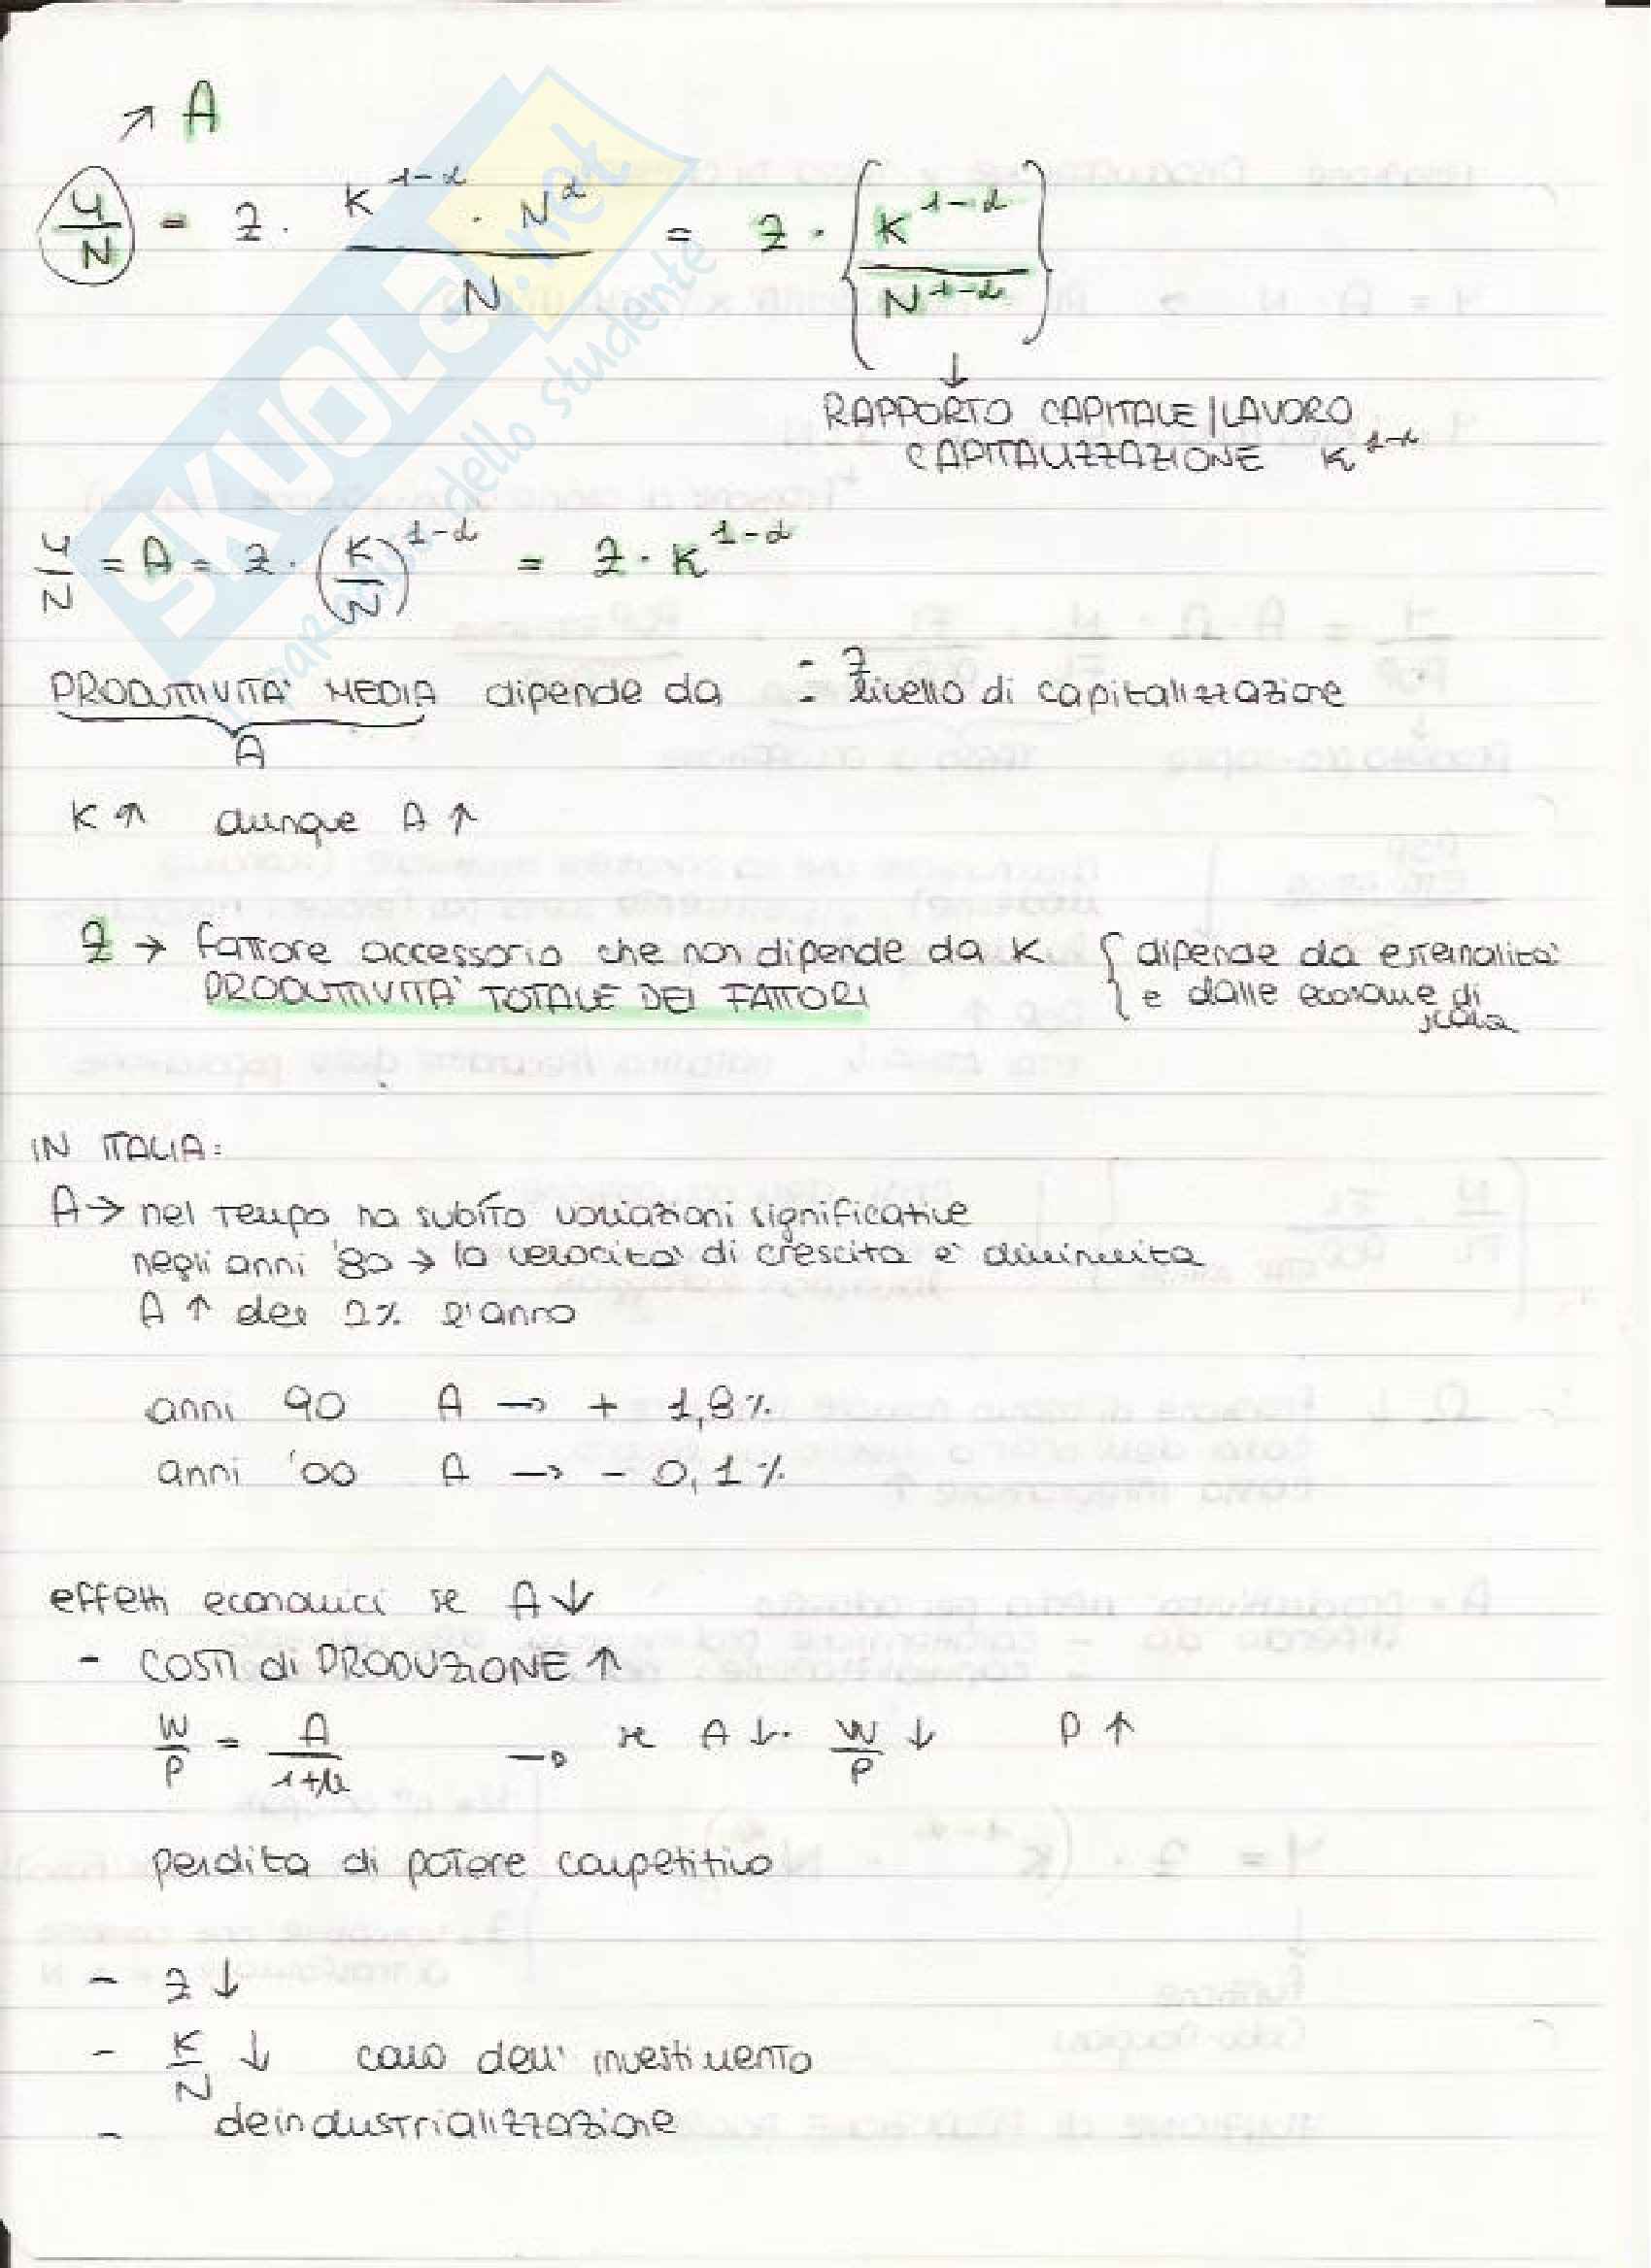 ↗ A
Y/N = Z · K^1-α · N^α / N = Z · { K^1-α / N^1-α }
↓
RAPPORTO CAPITALE/LAVORO
CAPITALIZZAZIONE K^1-α
Y/N = A = Z · (K/N)^1-α = Z · K^1-α
PRODUTTIVITA' MEDIA dipende da - Z
- livello di capitalizzazione
A
K ↑ dunque A ↑
Z → fattore accessorio che non dipende da K { dipende da esternalità
PRODUTTIVITA' TOTALE DEI FATTORI e dalle economie di
scala
IN ITALIA:
A → nel tempo ha subito variazioni significative
negli anni '80 → la velocità di crescita è diminuita
A ↑ del 2% l'anno
anni 90 A → + 1,8%
anni '00 A → - 0,1%
effetti economici se A ↓
- COSTI di PRODUZIONE ↑
W/P = A / 1+μ → se A ↓ W/P ↓ P ↑
perdita di potere competitivo
- Z ↓
- K/N ↓ calo dell' investimento
- deindustrializzazione
SKUOLa.net
dello studente